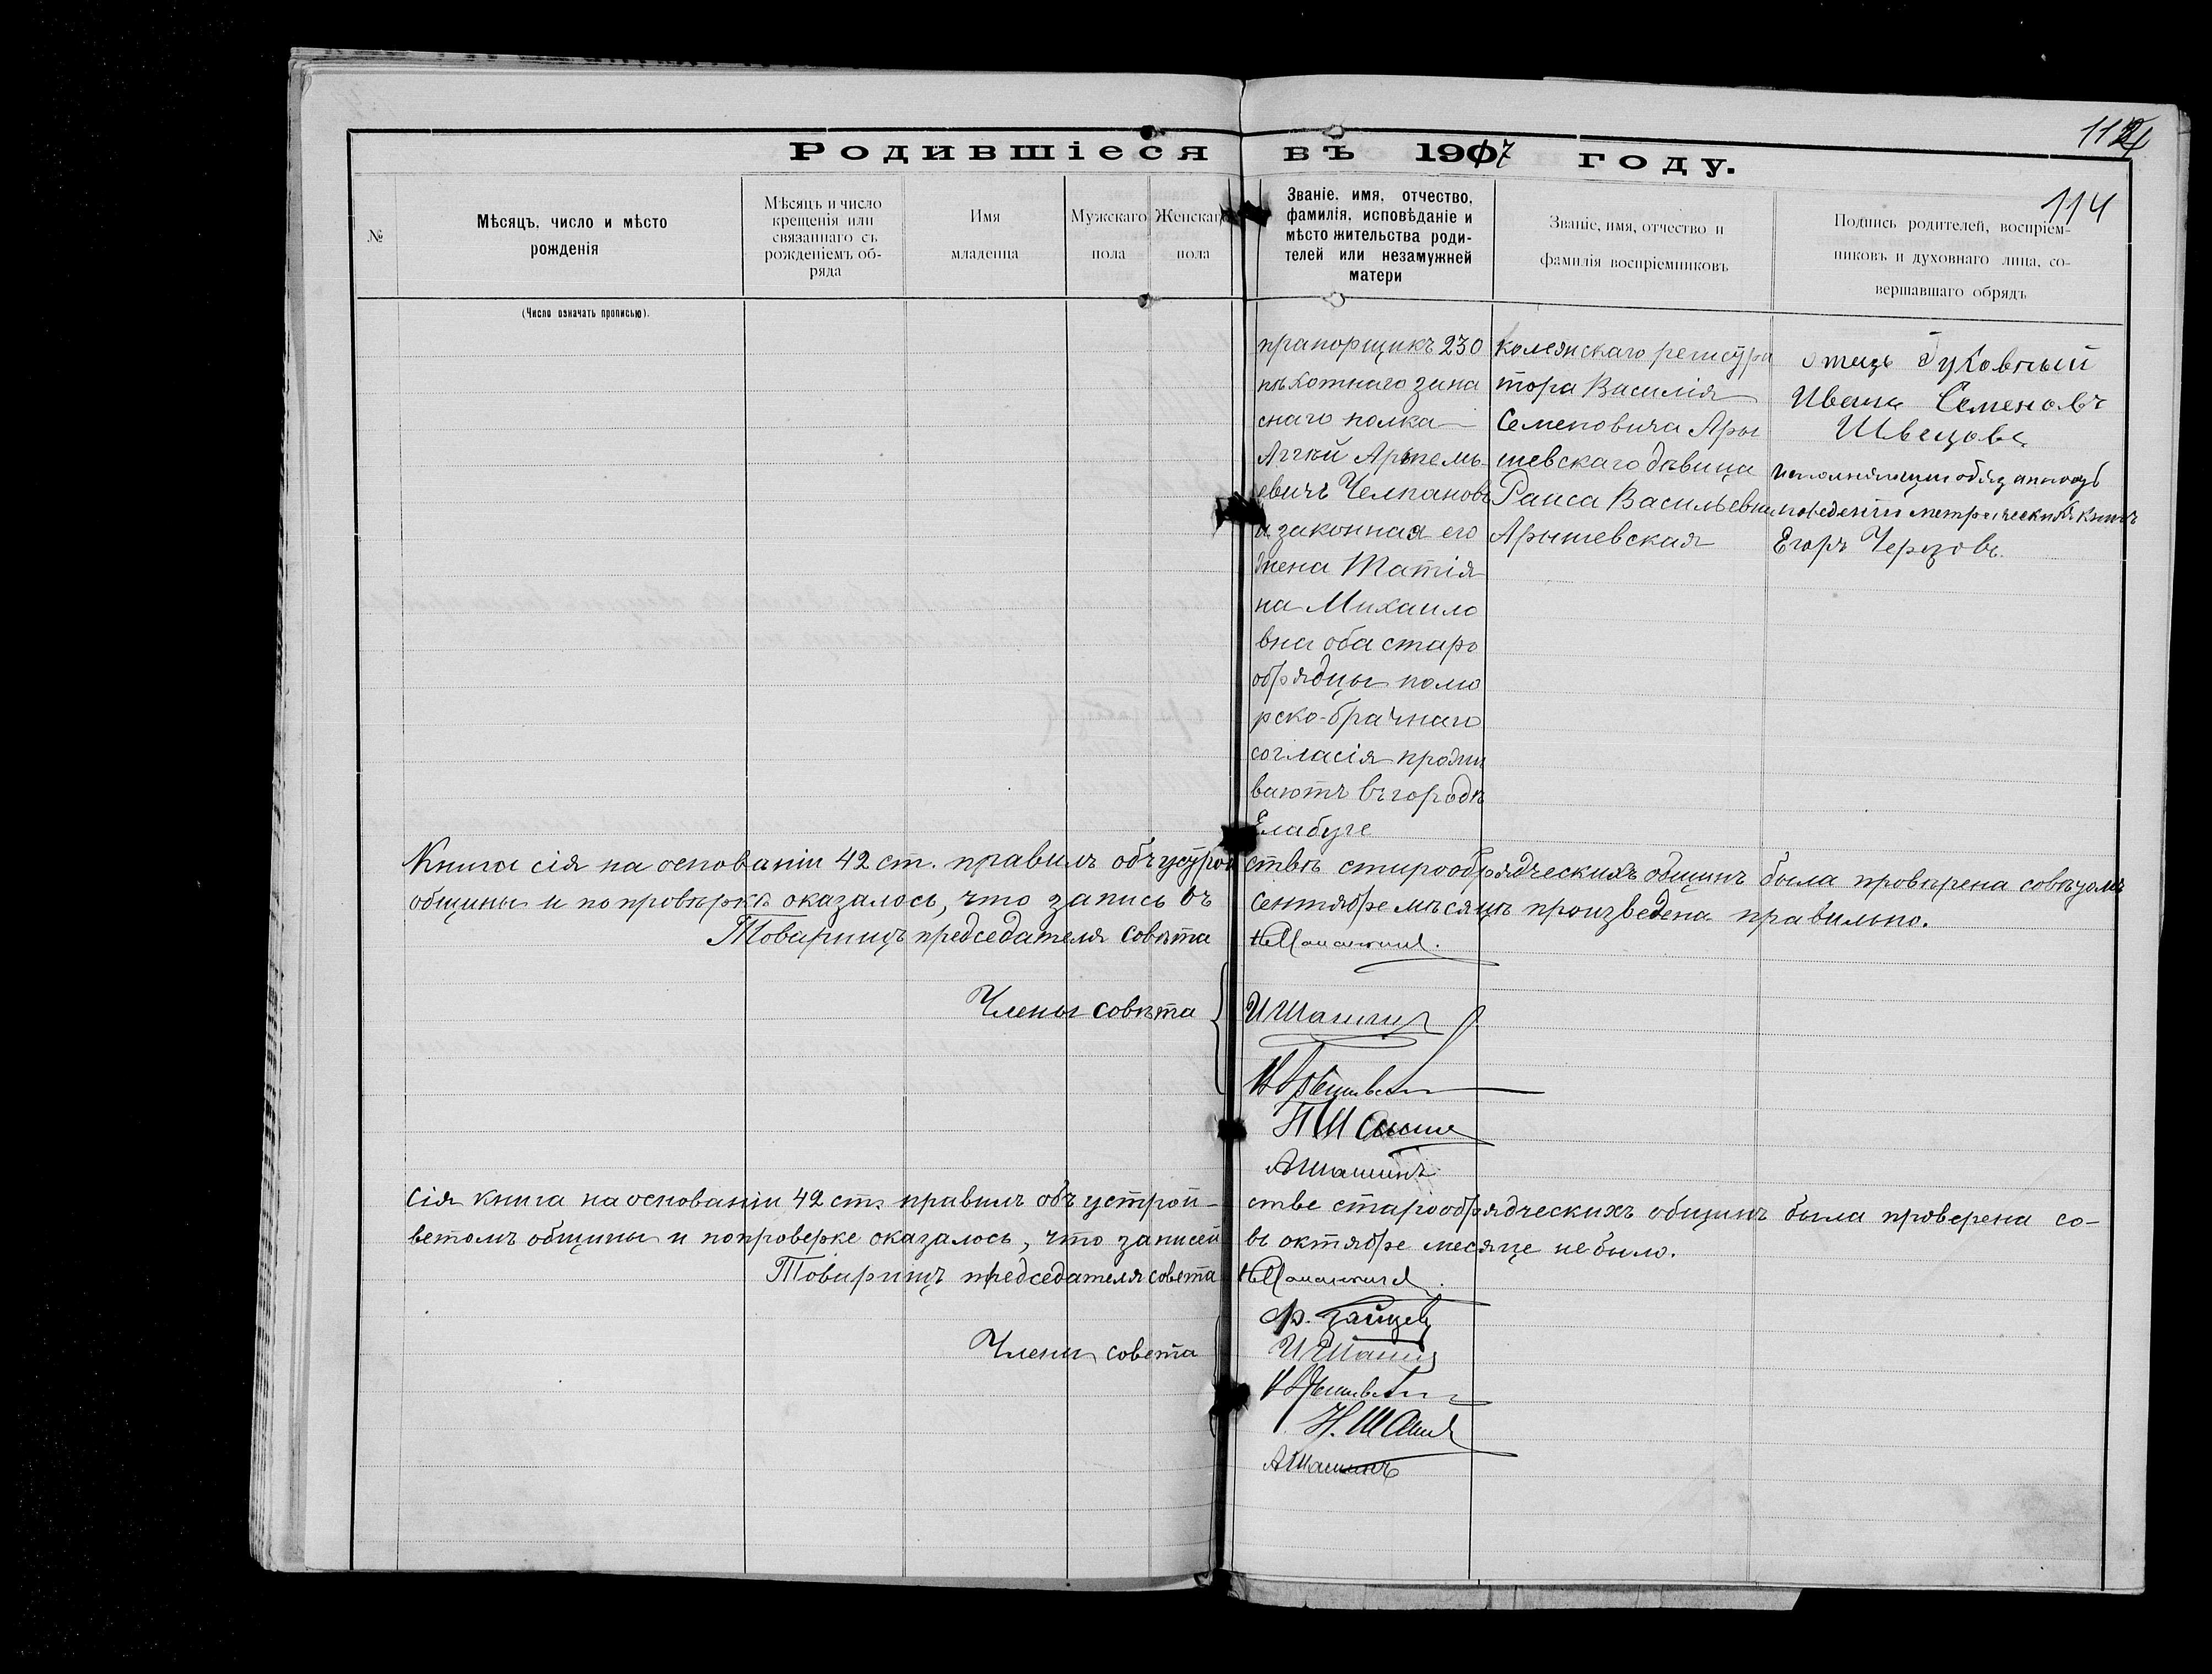 114
Родившіеся въ 1907 году.
114
№
Мѣсяцъ, число и мѣсто
рожденія
Мѣсяцъ и число
крещенія или
связаннаго съ
рожденіемъ об-
ряда
Имя
младенца
Мужскаго
пола
Женскаго
пола
Званіе, имя, отчество,
фамилія, исповѣданіе и
мѣсто жительства роди-
телей или незамужней
матери
Званіе, имя, отчество и
фамилія воспріемниковъ
Подпись родителей, воспріем-
никовъ и духовнаго лица, со-
вершавшаго обрядъ
(Число означать прописью).
прапорщикъ 230
пѣхотнаго запа
снаго полка
Аггѣй Артемь
евичъ Челпановъ
и законная его
жена Татія
на Михаило
вна оба старо
обрядцы помо
рско-брачнаго
согласія прожи
ваютъ въ городѣ
Елабуге
колежскаго регистра
тора Василія
Семеновича Ары
шевскаго дѣвица
Раиса Васильевна
Арышевская
отецъ духовный
Иванъ Семеновъ
Швецовъ
исполняющи обязанность
поведенію метрическихъ книгъ
Егоръ Черезовъ.
Книга сія на основаніи 42 ст. правилъ объ устрой ствѣ старообрядческихъ общинъ была провѣрена совѣтомъ
общины и по провѣркѣ оказалось, что запись въ сентябре мѣсяцѣ произведена правильно.
Товарищъ председателя совѣта
Члены совѣта
И Шашин
Н Шашин
АШашинъ
Сія книга на основаніи 42 ст. правилъ объ устрой- стве старообрядческихъ общинъ была проверена со-
ветомъ общины и по проверке оказалось, что записей въ октябре месяце не было.
Товарищъ председателя совета
Ф. Зайцевъ
Члены совета
И Шашин
Н. Шашин
АШашинъ